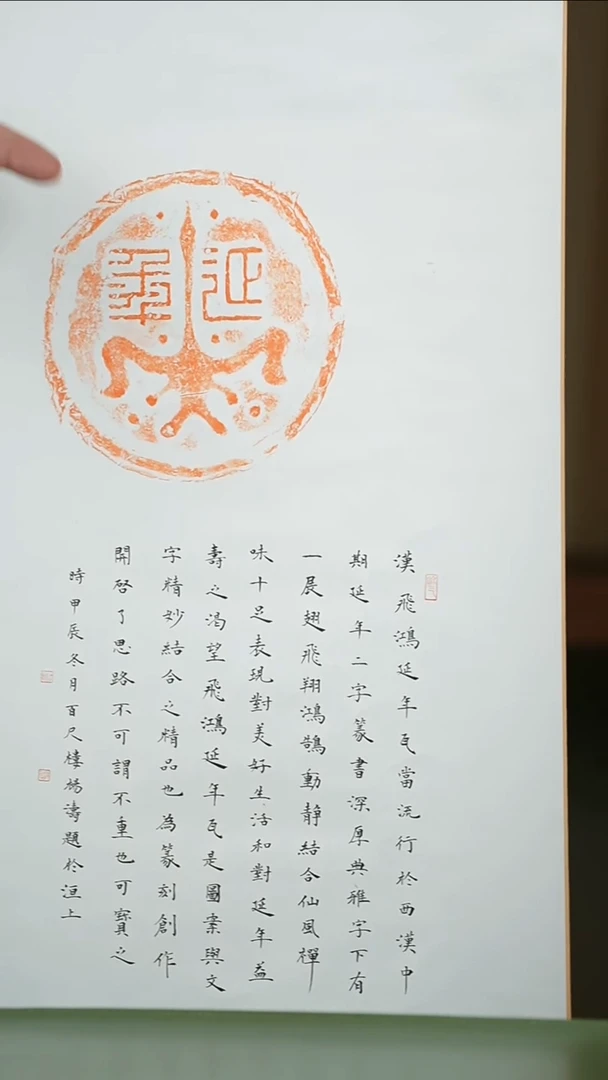 延年
漢飛鴻延年瓦當流行於西漢中
期延年二字篆書深厚典雅字下有
一展翅飛翔鴻鵠動靜結合仙風禪
味十足表現對美好生活和對延年益
壽之渴望飛鴻延年瓦是圖案與文
字精妙結合之精品也為篆刻創作
開啓了思路不可謂不重也可寶之
時甲辰冬月百尺樓楊濤題於洹上